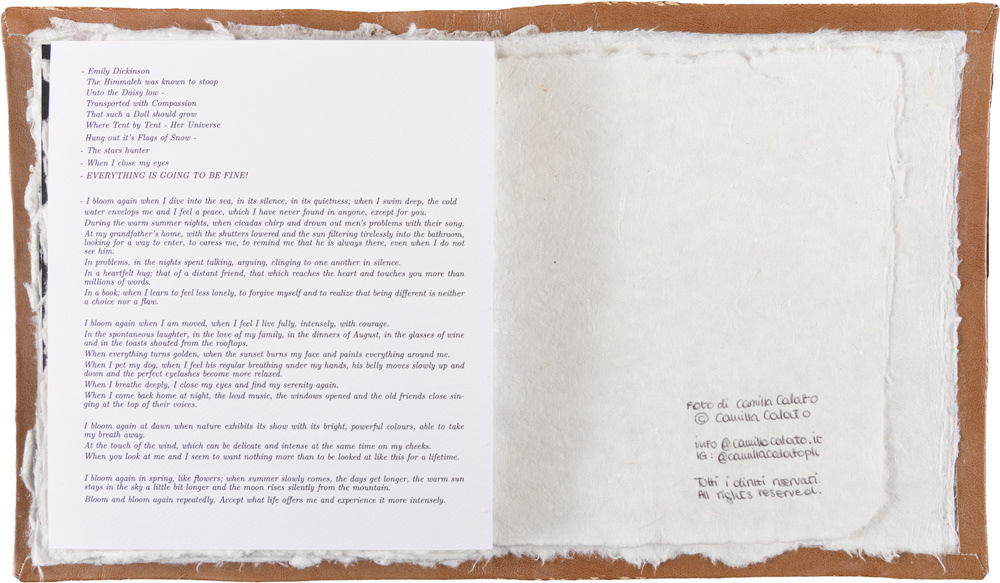 - Emily Dickinson
The Himmaleh was known to stoop
Unto the Daisy low -
Transported with Compassion
That such a Doll should grow
Where Tent by Tent - Her Universe
Hung out it's Flags of Snow -
- The stars hunter
- When I close my eyes
- EVERYTHING IS GOING TO BE FINE!
- I bloom again when I dive into the sea, in its silence, in its quietness; when I swim deep, the cold
water envelops me and I feel a peace, which I have never found in anyone, except for you.
During the warm summer nights, when cicadas chirp and drown out men's problems with their song.
At my grandfather's home, with the shutters lowered and the sun filtering tirelessly into the bathroom,
looking for a way to enter, to caress me, to remind me that he is always there, even when I do not
see him.
In problems, in the nights spent talking, arguing, clinging to one another in silence.
In a heartfelt hug; that of a distant friend, that which reaches the heart and touches you more than
millions of words.
In a book; when I learn to feel less lonely, to forgive myself and to realize that being different is neither
a choice nor a flaw.
I bloom again when I am moved, when I feel I live fully, intensely, with courage.
In the spontaneous laughter, in the love of my family, in the dinners of August, in the glasses of wine
and in the toasts shouted from the rooftops.
When everything turns golden, when the sunset burns my face and paints everything around me.
When I pet my dog, when I feel his regular breathing under my hands, his belly moves slowly up and
down and the perfect eyelashes become more relaxed.
When I breathe deeply, I close my eyes and find my serenity again.
When I come back home at night, the loud music, the windows opened and the old friends close sin-
ging at the top of their voices.
I bloom again at dawn when nature exhibits its show with its bright, powerful colours, able to take
my breath away.
At the touch of the wind, which can be delicate and intense at the same time on my cheeks.
When you look at me and I seem to want nothing more than to be looked at like this for a lifetime.
I bloom again in spring, like flowers; when summer slowly comes, the days get longer, the warm sun
stays in the sky a little bit longer and the moon rises silently from the mountain.
Bloom and bloom again repeatedly. Accept what life offers me and experience it more intensely.
Foto di Camilla Calato
© Camilla Calato
info@camillacalato.it
IG: @camillacalatoph
Tutti i diritti riservati.
All rights reserved.